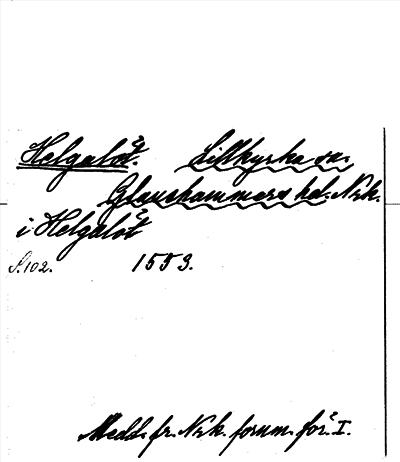 Helgalöt. Lillkyrka sn.
Glanshammars hd. Nrk.
i Helgalöt
S. 102. 1553.
Medd. fr. Nrk. fornm. för. I.